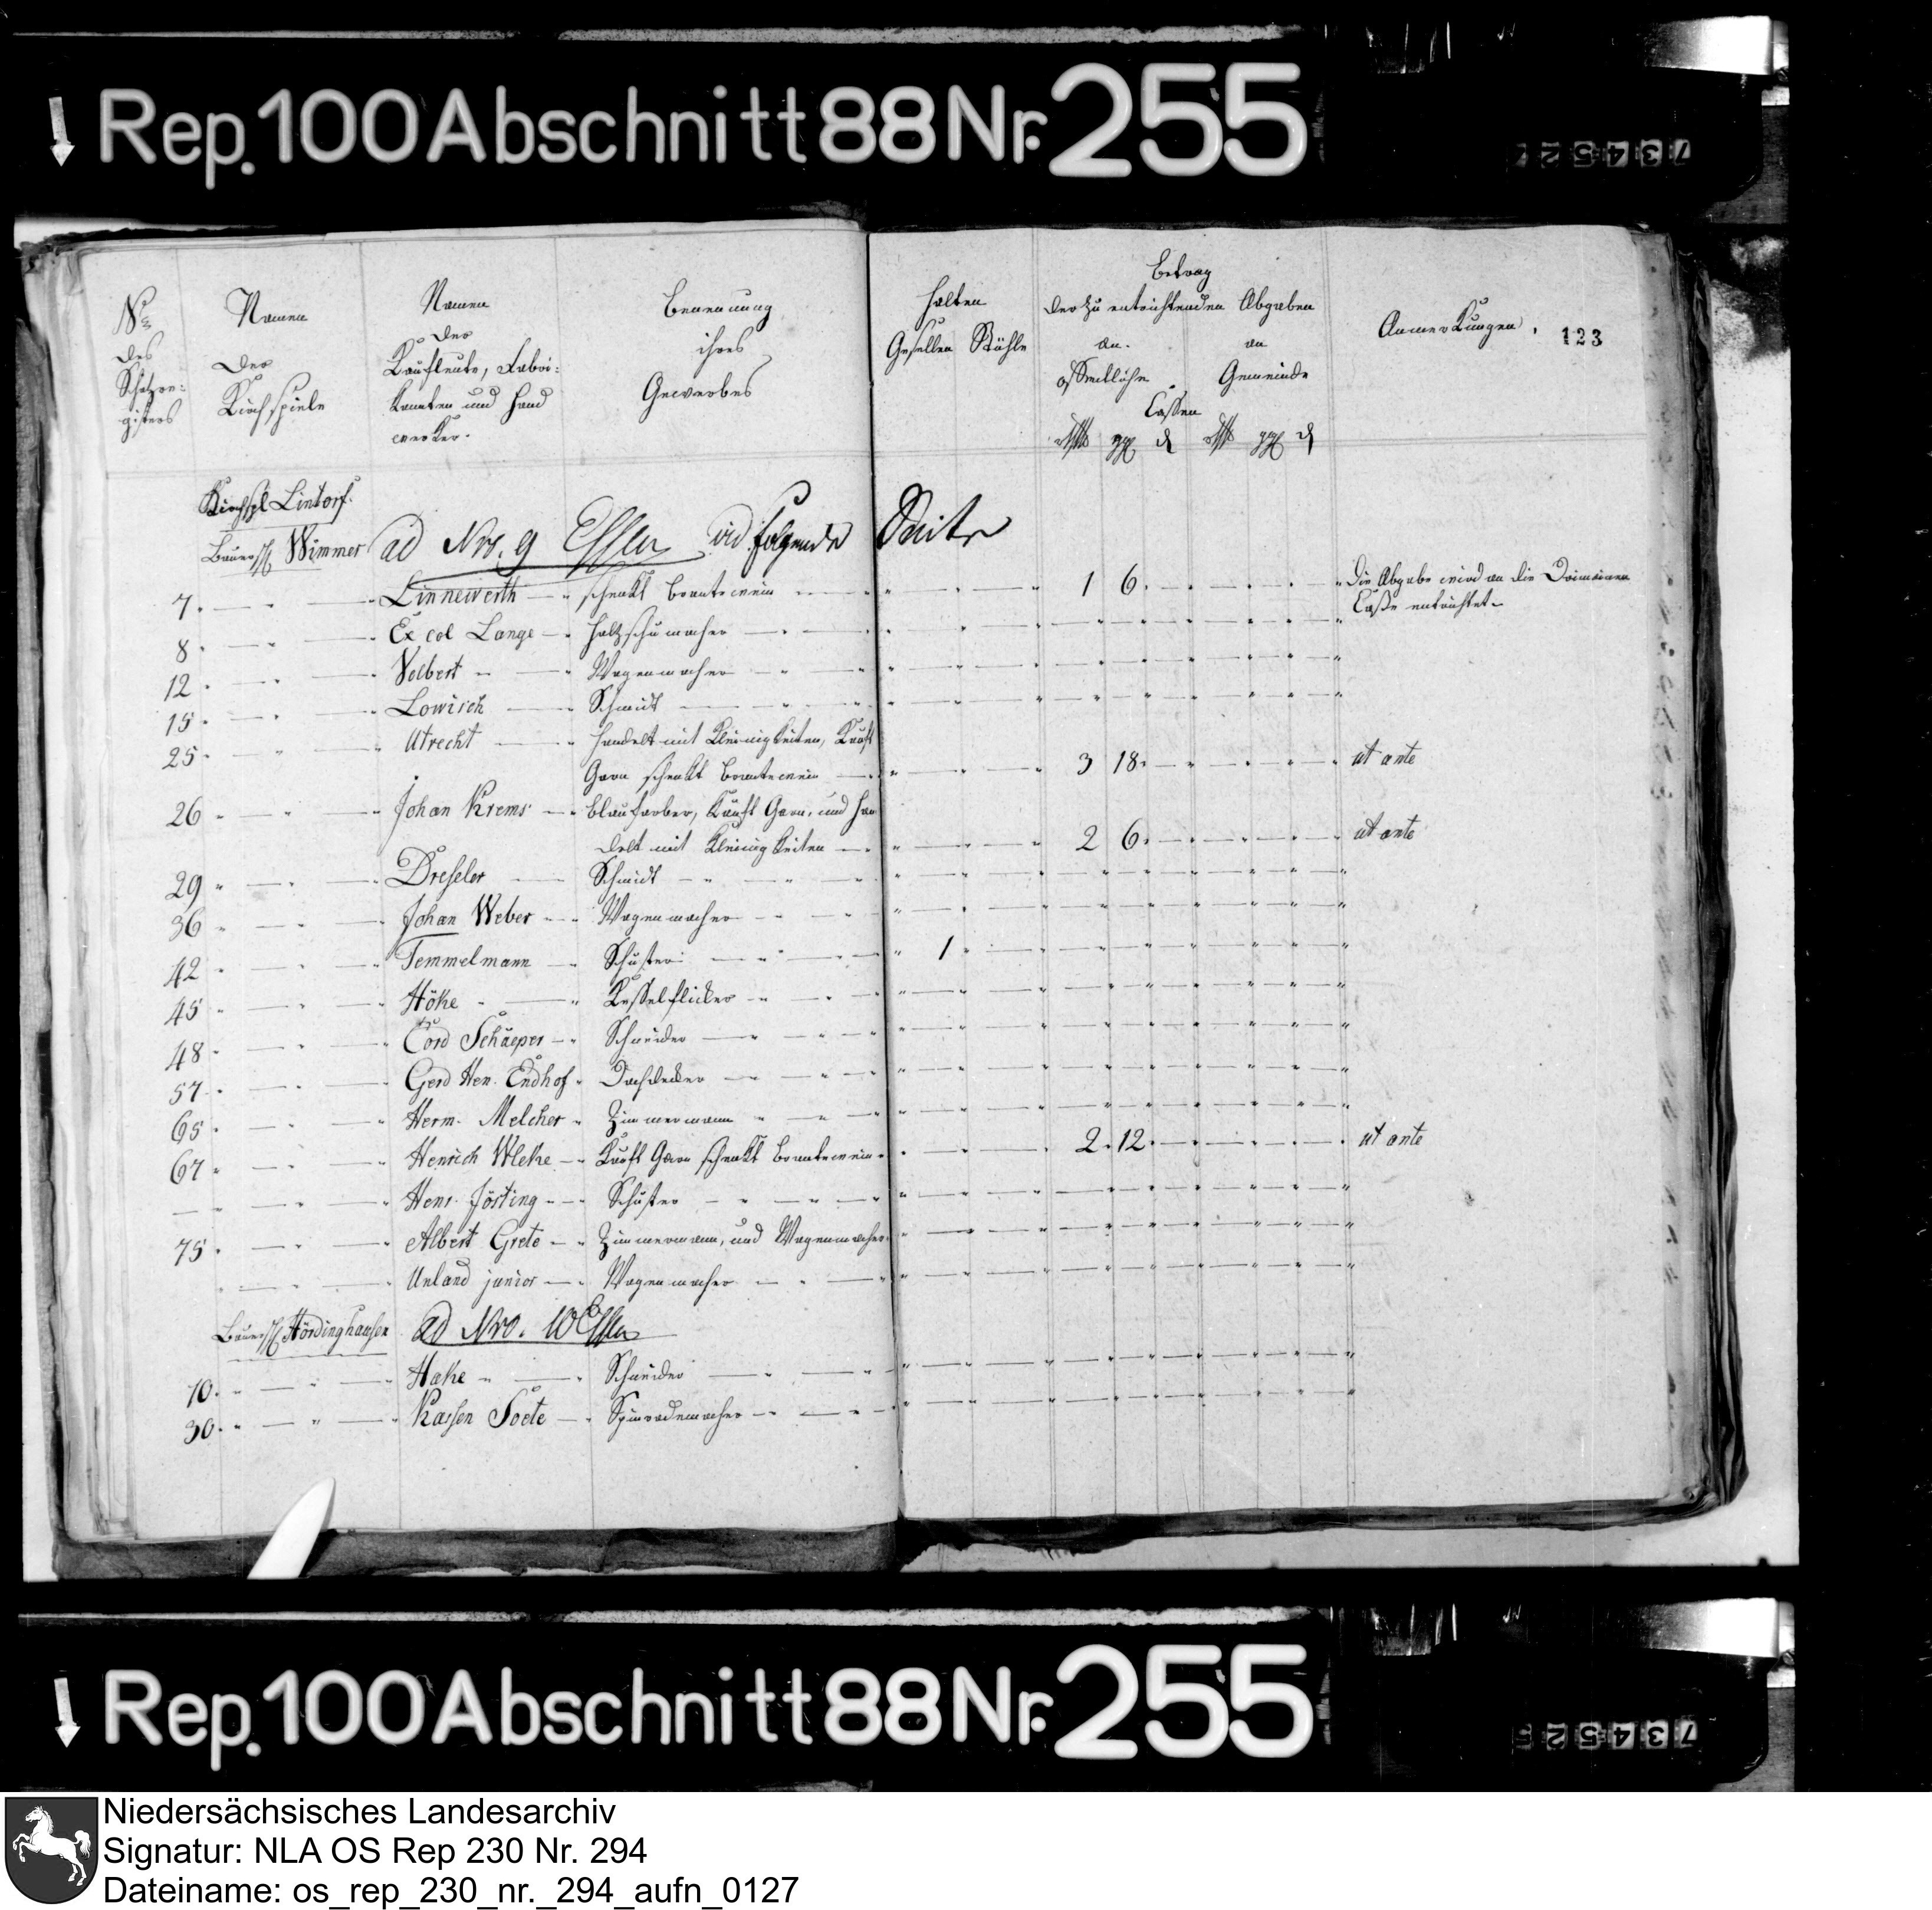 Rep. 100 Abschnitt 88 Nr. 255
73452
No
des
Schatzre:
gisters
Namen
der
Kirchspiele
Namen
der
Kaufleute, Fabri:
kanten und Hand
werker.
Benennung
ihres
Gewerbes
halten
Gesellen Stühle
Betrag
der zu entrichtenden Abgaben
an. an
offentliche Gemeinde
Cassen
Rthlr ggl d Rthlr ggl d
Anmerkungen. 123
Kirchspl Lintorf.
Bauersch Wimmer ad Nro. 9 Essen vid folgende Seite
7. Linnewerth schenkt Brantewein 1 6. Die Abgabe wird an die Domainen
Casse entrichtet
8 Ex col Lange Holtzschumacher
12 Velbert Wagenmacher
15 Lowisch Schmidt
25 Utrecht handelt mit Kleinigkeiten, Kauft
Garn schenkt Brantewein 3 18. ut ante
26 Johan Krems Blaufarber, Kauft Garn, und han
delt mit Kleinigkeiten 2 6. ut ante
29 Dreseler Schmidt
36 Johan Weber Wagenmacher
42 Temmelmann Schuster 1
45 Höke Kesselflicker
48 Cord Schäeper Schneider
57 Gerd Hen. Endhof Dachdecker
65 Herm. Melcher Zimmermann
67 Henrich Weke Kauft Garn schenkt Brantewein 2. 12. ut ante
Henr. Jösting Schuster
75 Albert Grete Zimmermann, und Wagenmacher
Unland junior Wagenmacher
Bauersch Hördinghausen ad Nro. 10 Essen
10. Hake Schneider
30. Kassen Soete Spinrademacher
Rep. 100 Abschnitt 88 Nr. 255
73452
Niedersächsisches Landesarchiv
Signatur: NLA OS Rep 230 Nr. 294
Dateiname: os_rep_230_nr._294_aufn_0127